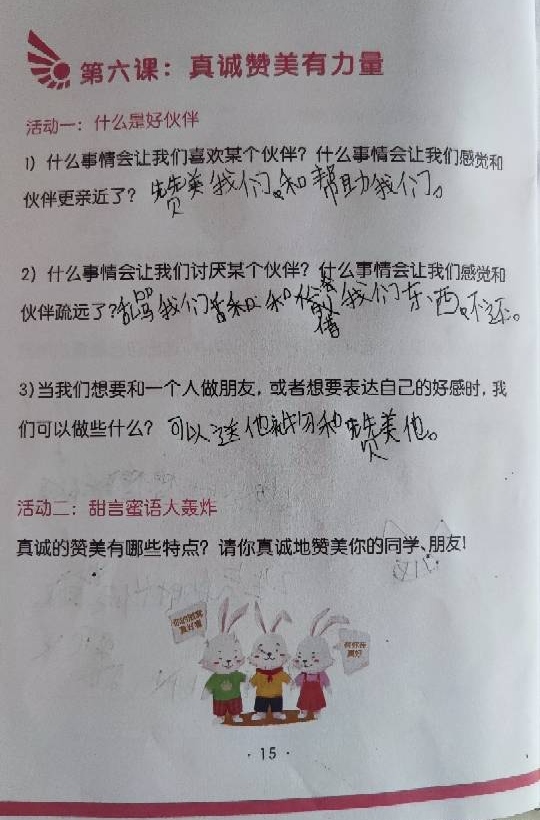 第六课：真诚赞美有力量
活动一：什么是好伙伴
1）什么事情会让我们喜欢某个伙伴？什么事情会让我们感觉和
伙伴更亲近了？赞美我们和帮助我们。
2）什么事情会让我们讨厌某个伙伴？什么事情会让我们感觉和
伙伴疏远了？乱骂我们 和 借我们东西不还。
3)当我们想要和一个人做朋友，或者想要表达自己的好感时，我
们可以做些什么？可以送他礼物和赞美他。
活动二：甜言蜜语大轰炸
真诚的赞美有哪些特点？请你真诚地赞美你的同学、朋友！
· 15 ·